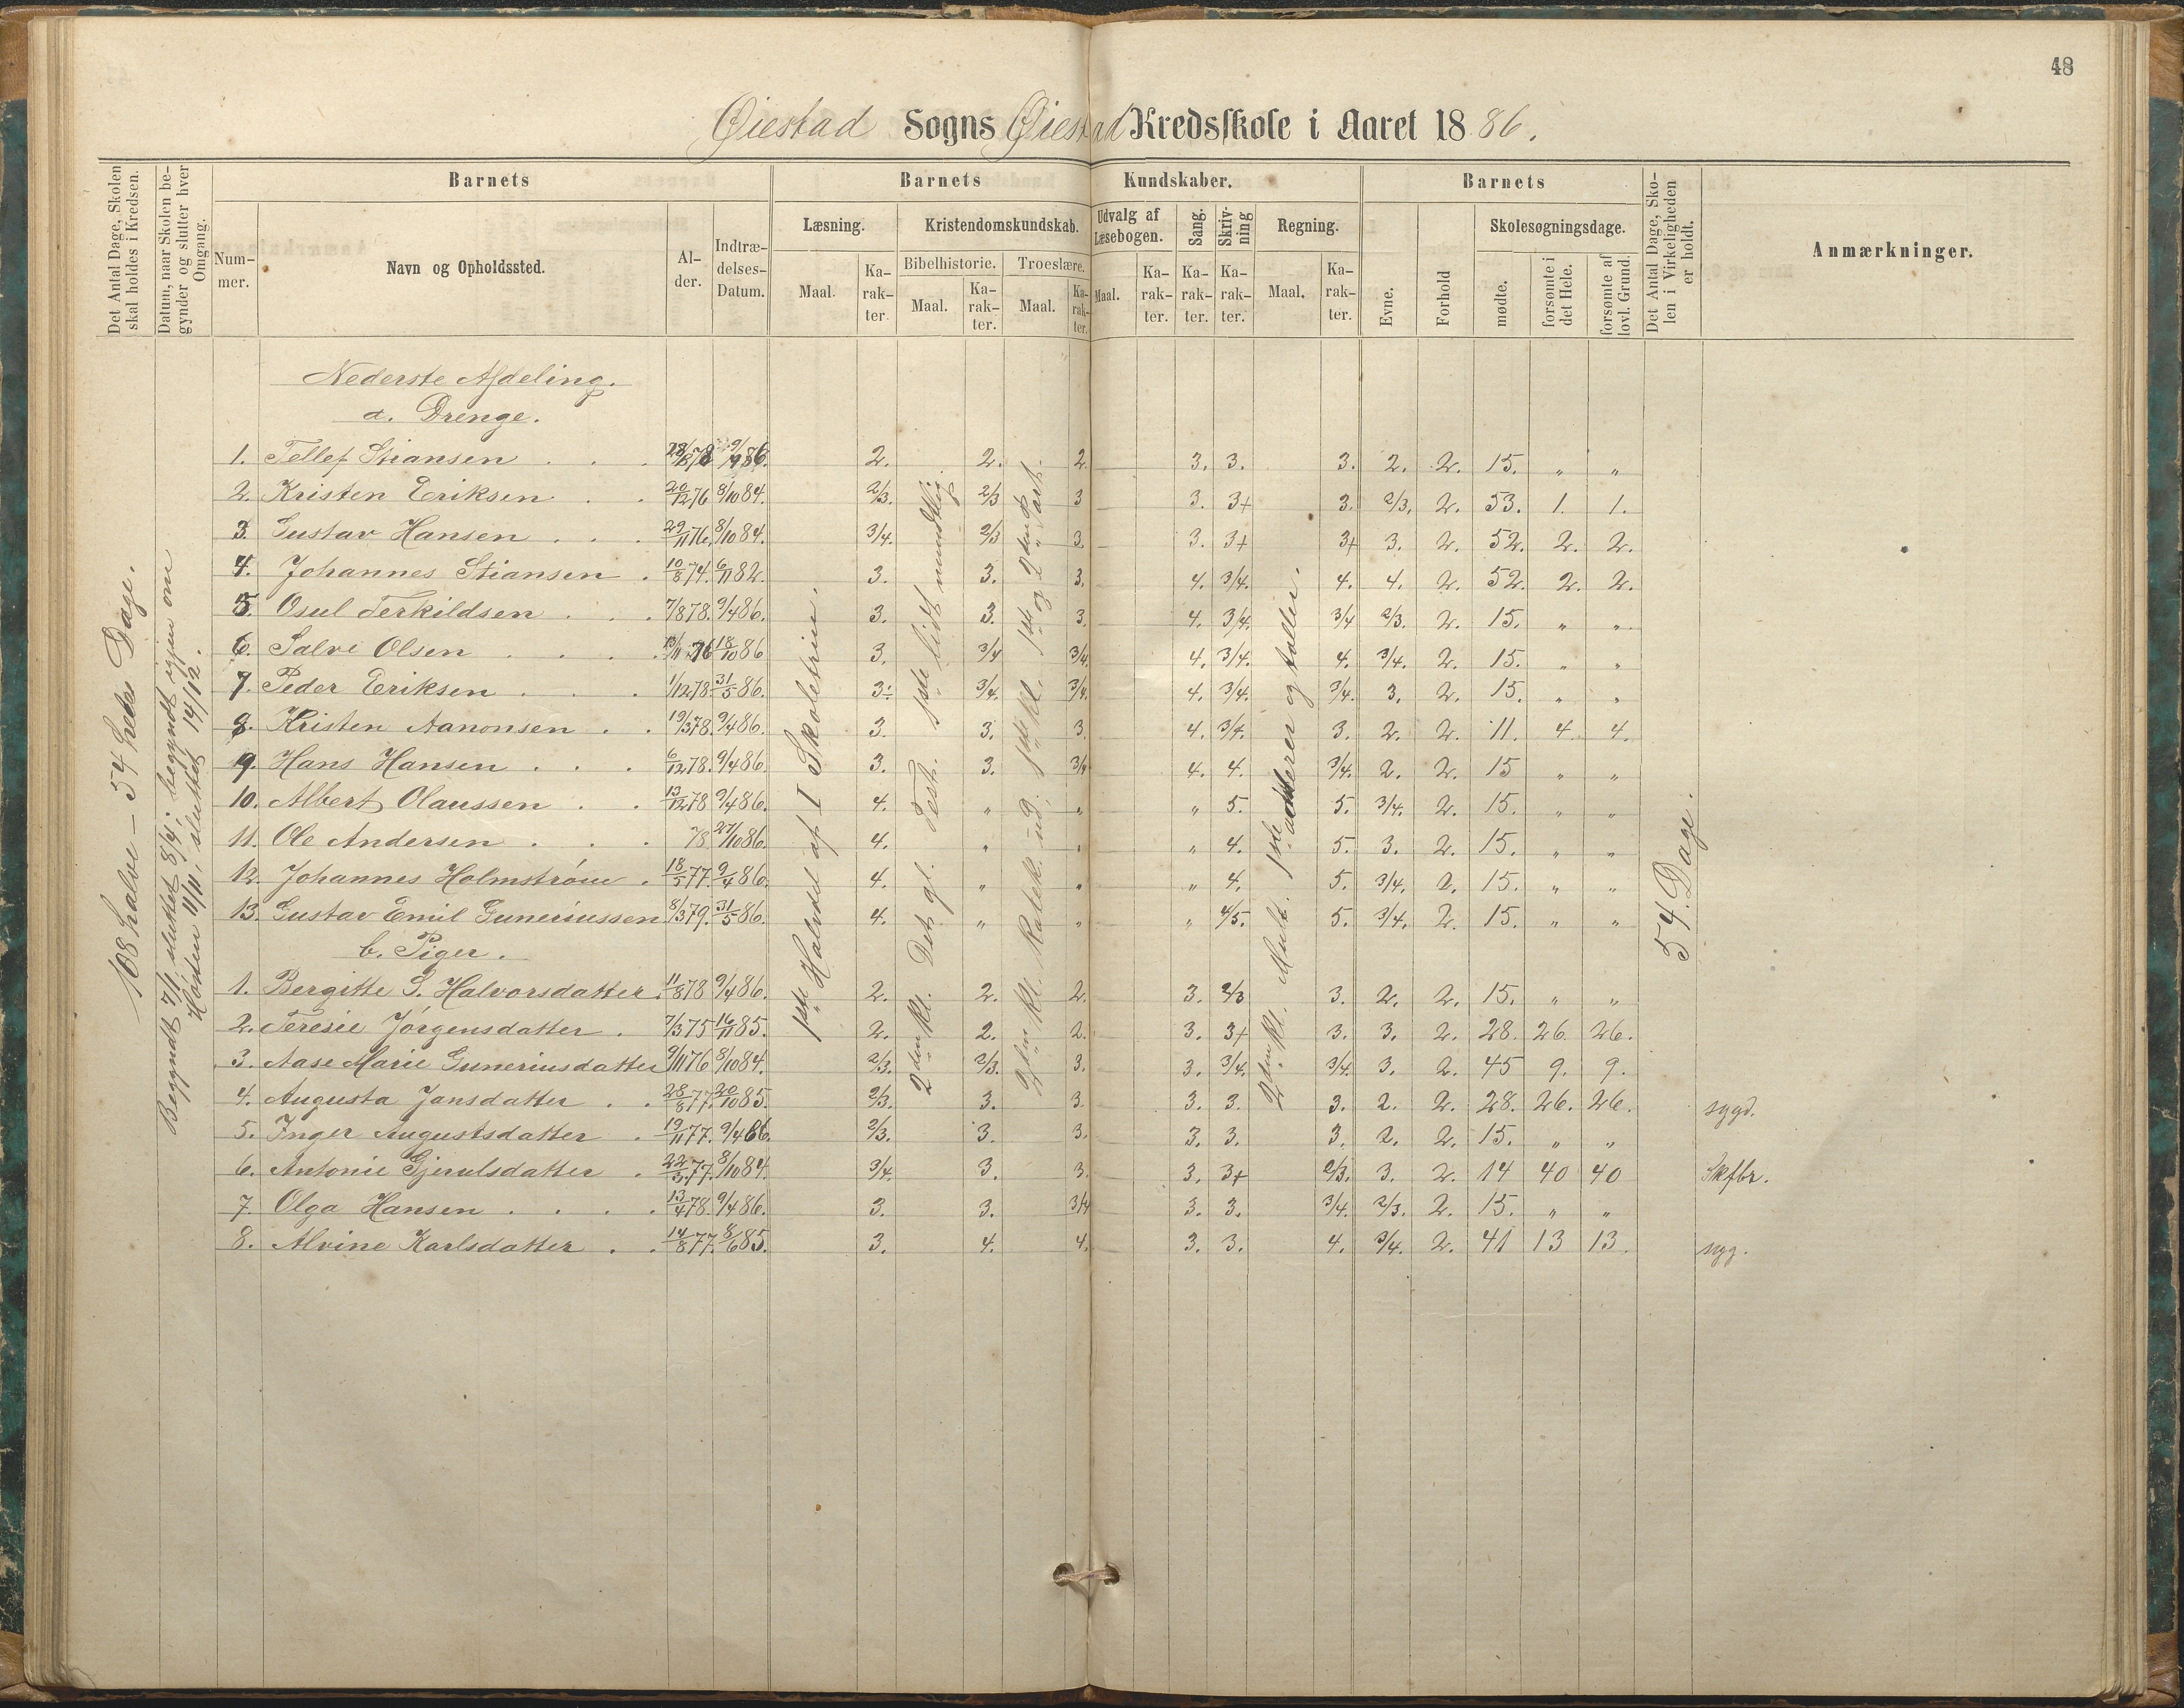 48
Øiestad Sogns Øiestad Kredsskole i Aaret 1886.
Det Antal Dage, Skolen skal holdes i Kredsen.
Datum, naar Skolen begynder og slutter hver Omgang.
Barnets
Barnets Kundskaber.
Barnets
Det Antal Dage, Skolen i Virkeligheden er holdt.
Anmærkninger.
Nummer.
Navn og Opholdssted.
Alder.
Indtrædelses-Datum.
Læsning.
Kristendomskundskab.
Udvalg af Læsebogen.
Sang.
Skrivning
Regning.
Evne.
Forhold
Skolesøgningsdage.
Bibelhistorie.
Troeslære.
Maal. Karakter. Maal. Karakter. Maal. Karakter. Maal. Karakter. Karakter. Karakter. Maal. Karakter.
mødte.
forsømte i det Hele.
forsømte af lovl. Grund.
108 halve - 54 hele Dage.
Begyndt 7/1 sluttet 8/4; begyndt igjen om
Høsten 11/11, sluttet 14/12.
1ste Halvdel af I Skoletrin.
2den Kl. Det gl. Test. 1ste lidt mundtlig
2den Kl. Katek. ud. 1ste Kl. 1ste og 2den Part.
2den Kl. Mult. 1ste adderer og taller.
54 Dage.
Nederste Afdeling.
a. Drenge.
1. Tellef Stiansen 78 86. 2. 2. 2. 3. 3. 3. 2. 2. 15. " "
2. Kristen Eriksen 20/12 76 8/10 84. 2/3. 2/3 3 3. 3+ 3. 2/3. 2. 53. 1. 1.
3. Gustav Hansen 29/11 76. 8/10 84. 3/4. 2/3 3. 3. 3+ 3+ 3. 2. 52. 2. 2.
4. Johannes Stiansen 10/8 74. 6/11 82. 3. 3. 3. 4. 3/4. 4. 4. 2. 52. 2. 2.
5. Osul Terkildsen 7/8 78. 9/4 86. 3. 3. 3. 4. 3/4. 3/4 2/3. 2. 15. " "
6. Salve Olsen 76 18/10 86 3. 3/4 3/4. 4. 3/4. 4. 3/4. 2. 15. " "
7. Peder Eriksen 1/12 78. 31/5 86. 3÷ 3/4. 3/4. 4. 3/4. 3/4. 3. 2. 15. " "
8. Kristen Aanonsen 19/3 78. 9/4 86. 3. 3. 3. 4. 3/4. 3. 2. 2. 11. 4. 4.
9. Hans Hansen 6/12 78. 9/4 86. 3. 3. 3/4 4. 4. 3/4. 2. 2. 15 " "
10. Albert Olaussen 13/12 78 9/4 86. 4. " " " 5. 5. 3/4. 2. 15. " "
11. Ole Andersen 78 27/10 86. 4. " " " 4. 5. 3. 2. 15. " "
12. Johannes Holmstrøm 18/5 77. 9/4 86. 4. " " " 4. 5. 3/4. 2. 15. " "
13. Gustav Emil Guneriussen 8/3 79. 31/5 86. 4. " " " 4/5. 5. 3/4. 2. 15. " "
b. Piger.
1. Bergitte S. Halvorsdatter. 11/8 78 9/4 86. 2. 2. 2. 3. 2/3 3. 2. 2. 15. " "
2. Teresie Jørgensdatter. 7/3 75 16/11 85. 2. 2. 2. 3. 3+ 3. 3. 2. 28. 26. 26.
3. Aase Marie Guneriusdatter 9/11 76 8/10 84. 2/3. 2/3. 3. 3. 3/4. 3/4. 3. 2. 45 9. 9.
4. Augusta Jansdatter 28/8 77. 20/10 85. 2/3. 3. 3. 3. 3. 3. 2. 2. 28. 26. 26. sygd.
5. Inger Augustsdatter 19/11 77. 9/4 86. 2/3. 3. 3. 3. 3. 3. 2. 2. 15. " "
6. Antonie Gjerulsdatter 22/3 77. 8/10 84. 3/4. 3. 3. 3. 3+ 2/3. 3. 2. 14 40 40 Skfbr.
7. Olga Hansen 13/4 78. 9/4 86. 3. 3. 3/4 3. 3. 3/4. 2/3. 2. 15. " "
8. Alvine Karlsdatter 14/8 77. 8/6 85. 3. 4. 4. 3. 3. 4. 3/4. 2. 41 13 13. syg.